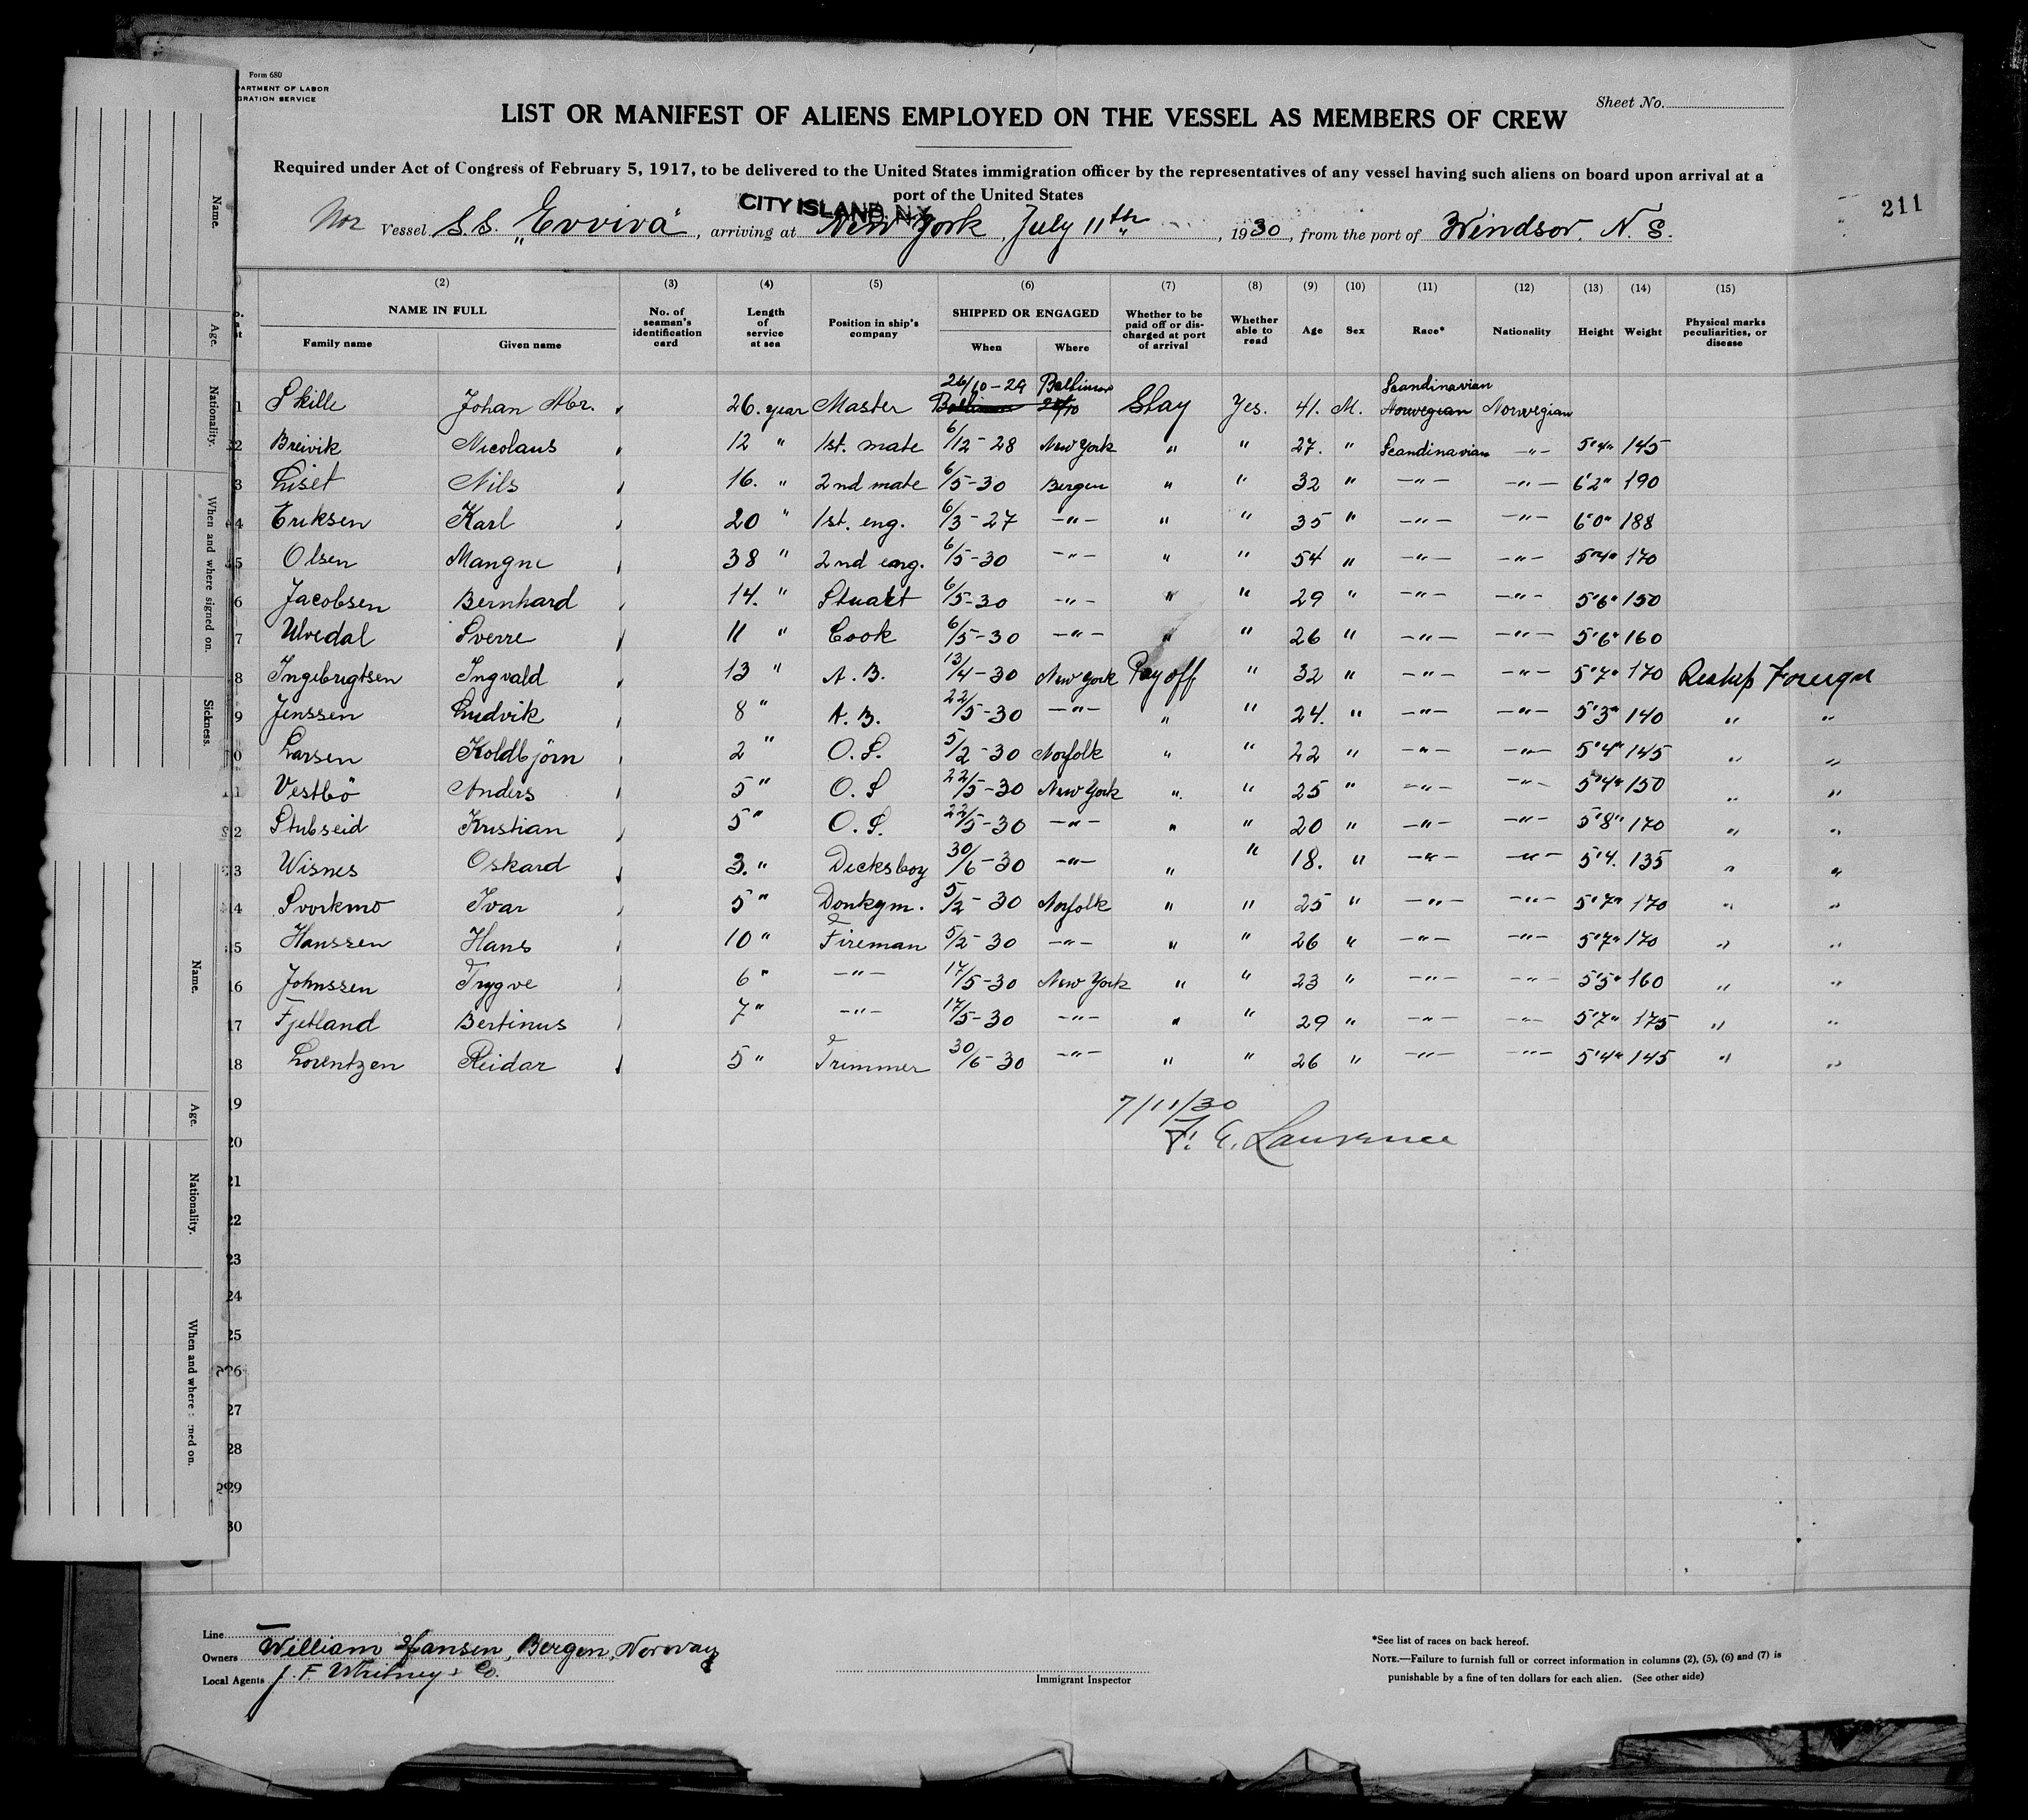 Form 680
PARTMENT OF LABOR
GRATION SERVICE
Sheet No.
LIST OR MANIFEST OF ALIENS EMPLOYED ON THE VESSEL AS MEMBERS OF CREW
Required under Act of Congress of February 5, 1917, to be delivered to the United States immigration officer by the representatives of any vessel having such aliens on board upon arrival at a
port of the United States
CITY ISLAND, N.Y.
211
Nor Vessel S.S. "Evviva", arriving at New York, July 11th, 1930, from the port of Windsor, N. S.
(2) (3) (4) (5) (6) (7) (8) (9) (10) (11) (12) (13) (14) (15)
NAME IN FULL
Family name Given name
No. of seaman's identification card
Length of service at sea
Position in ship's company
SHIPPED OR ENGAGED
When Where
Whether to be paid off or discharged at port of arrival
Whether able to read
Age Sex Race* Nationality Height Weight
Physical marks peculiarities, or disease
26/10-29 Baltimore Scandinavian
1 Skille Johan Abr. 26. year Master Stay Yes. 41. M. Norwegian Norwegian
2 Breivik Nicolaus 12 " 1st. mate 6/12-28 New York " " 27. " Scandinavian -"- 5'4" 145
3 Liset Nils 16. " 2nd mate 6/5-30 Bergen " " 32 " -"- -"- 6'2" 190
4 Eriksen Karl 20 " 1st. eng. 6/3-27 -"- " " 35 " -"- -"- 6'0" 188
5 Olsen Mangne 38 " 2nd eng. 6/5-30 -"- " " 54 " -"- -"- 5'4" 170
6 Jacobsen Bernhard 14. " Stuart 6/5-30 -"- " " 29 " -"- -"- 5'6" 150
7 Ulvedal Sverre 11 " Cook 6/5-30 -"- " " 26 " -"- -"- 5'6" 160
8 Ingebrigtsen Ingvald 13 " A. B. 13/4-30 New York Pay off " 32 " -"- -"- 5'7" 170 Reship Foreign
9 Jenssen Ludvik 8 " A. B. 22/5-30 -"- " " 24. " -"- -"- 5'3" 140 " "
10 Larsen Koldbjörn 2 " O. S. 5/2-30 Norfolk " " 22 " -"- -"- 5'4" 145 " "
11 Vestbö Anders 5 " O. S 22/5-30 New York " " 25 " -"- -"- 5'4" 150 " "
12 Stubseid Kristian 5 " O. S. 22/5-30 -"- " " 20 " -"- -"- 5'8" 170 " "
13 Wisnes Oskard 3. " Decksboy 30/6-30 -"- " " 18. " -"- -"- 5'4. 135 " "
14 Svorkmo Ivar 5 " Donkym. 5/2-30 Norfolk " " 25 " -"- -"- 5'7" 170 " "
15 Hanssen Hans 10 " Fireman 5/2-30 -"- " " 26 " -"- -"- 5'7" 170 " "
16 Johnssen Trygve 6 " -"- 17/5-30 New York " " 23 " -"- -"- 5'5" 160 " "
17 Fjetland Bertinus 7 " -"- 17/5-30 -"- " " 29 " -"- -"- 5'7" 175 " "
18 Lorentzen Reidar 5 " Trimmer 30/6-30 -"- " " 26 " -"- -"- 5'4" 145 " "
19 7/11/30
20 F. E. Laurence
21
22
23
24
25
26
27
28
29
30
Line
Owners William Hansen, Bergen, Norway
Local Agents J. F. Whitney & Co.
Immigrant Inspector
*See list of races on back hereof.
NOTE.—Failure to furnish full or correct information in columns (2), (5), (6) and (7) is
punishable by a fine of ten dollars for each alien. (See other side)
Name.
Age.
Nationality.
When and where signed on.
Sickness.
Name.
Age.
Nationality.
When and where